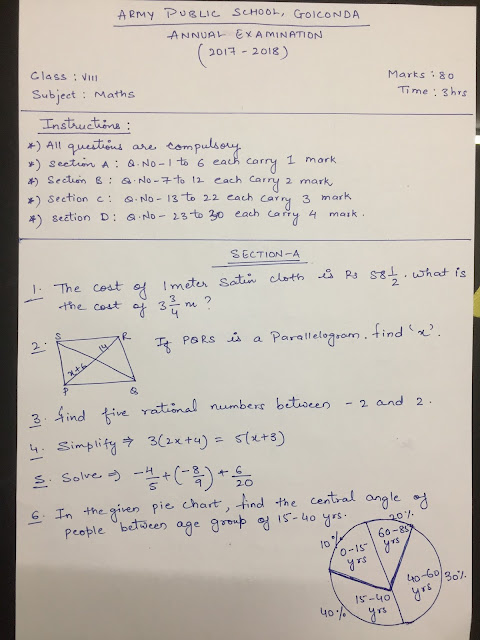 ARMY PUBLIC SCHOOL, GOLCONDA
ANNUAL EXAMINATION
(2017-2018)
Class : VIII
Marks : 80
Subject : Maths
Time : 3hrs
Instructions :
*) All questions are compulsory
*) Section A : Q.No-1 to 6 each carry 1 mark
*) Section B : Q.No-7 to 12 each carry 2 mark
*) Section C : Q.No-13 to 22 each carry 3 mark
*) Section D : Q.No- 23 to 30 each carry 4 mark.
SECTION-A
1. The cost of 1 meter Satin cloth is Rs 58 1/2. What is
the cost of 3 3/4 m ?
2. If PQRS is a Parallelogram. find 'x'.
S R
14
x+6
P Q
3. Find five rational numbers between -2 and 2.
4. Simplify ⇒ 3(2x+4) = 5(x+3)
5. Solve ⇒ -4/5 + (-8/9) + 6/20
6. In the given pie chart, find the central angle of
people between age group of 15-40 yrs.
20%
10% 0-15 yrs
60-85 yrs
40-60 yrs 30%
15-40 yrs
40%